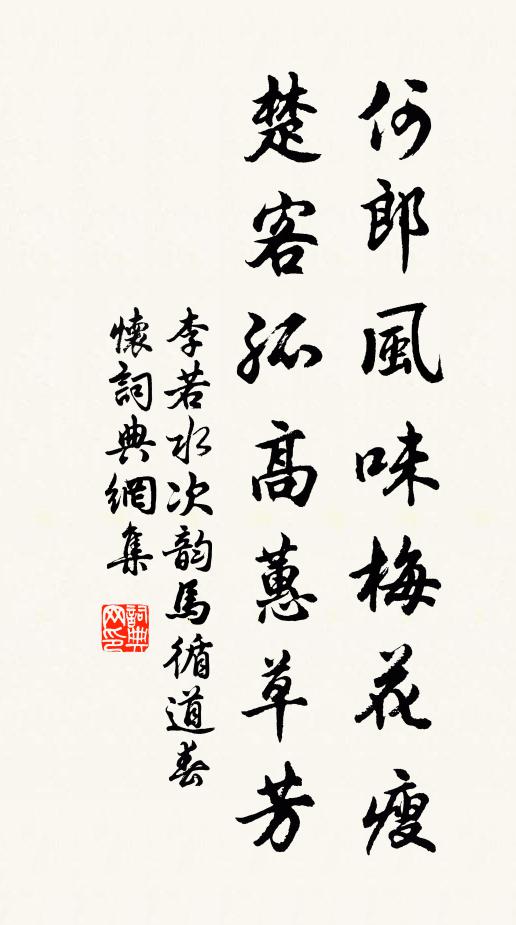 何郎風味梅花瘦
楚客孤高蕙草芳
李若水次韵馬循道春
懷詞典網集
詞典网印